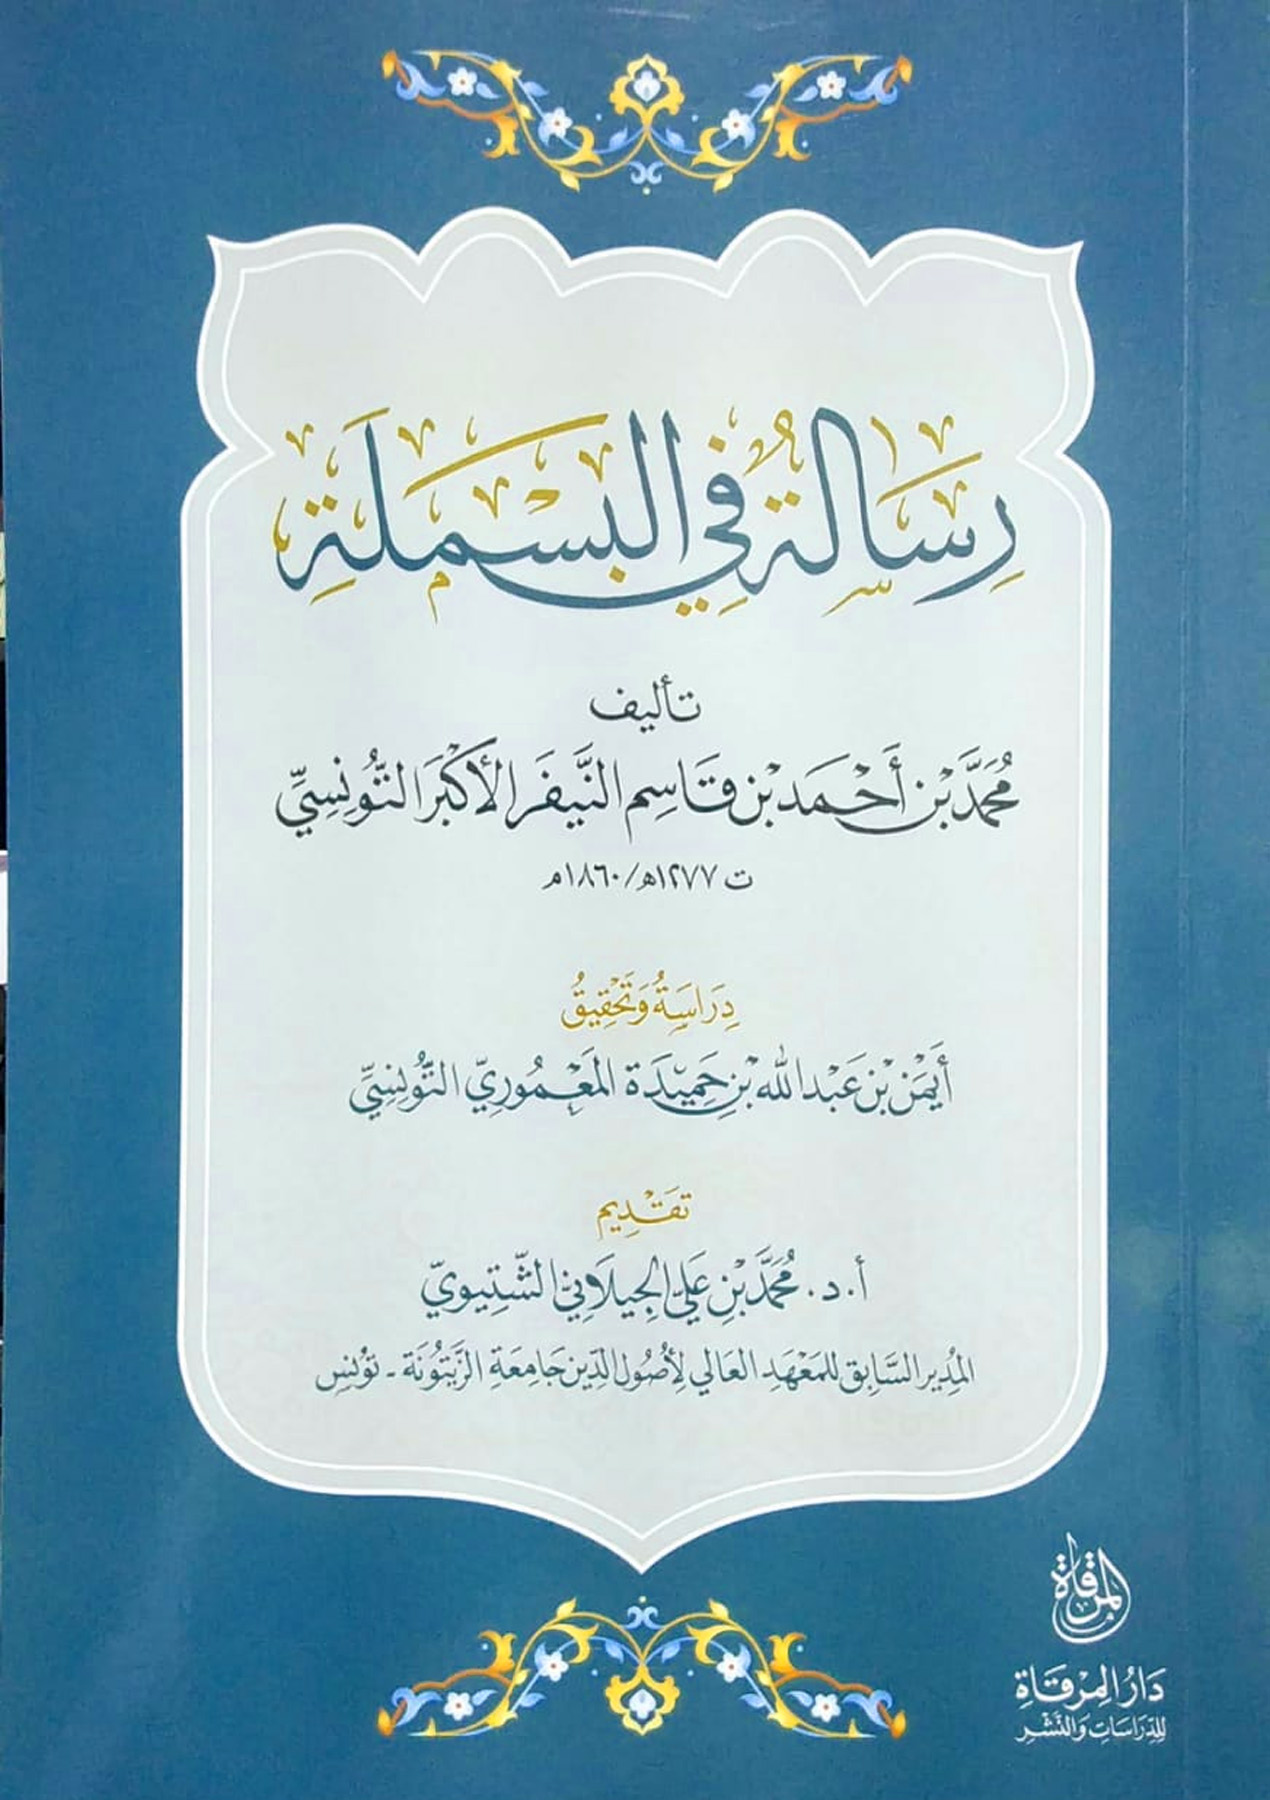 رِسَالَةٌ فِي البَسْمَلَةِ
تأليف
مُحَمَّد بْن أَحْمَد بْن قَاسِم النَّيفَر الأَكْبَر التُّونِسِيِّ
ت ١٢٧٧ه/١٨٦٠م
دِرَاسَةُ وَتَحْقِيقُ
أَيْمَن بْن عَبْد الله بْنِ حَمِيدَة المَعْمُورِيّ التُّونِسِيِّ
تَقْدِيم
أ. د. مُحَمَّد بْنِ عَلِيّ الجِيلَانِيّ الشّتِيوِيّ
المُدِير السَّابِق لِلمَعْهَد العَالِي لِأُصُول الدِّين جَامِعَةِ الزَّيْتُونَة - تُونِس
المرقاة
دَارُ المِرْقَاةِ
لِلدِّرَاسَاتِ وَالنَّشْرِ